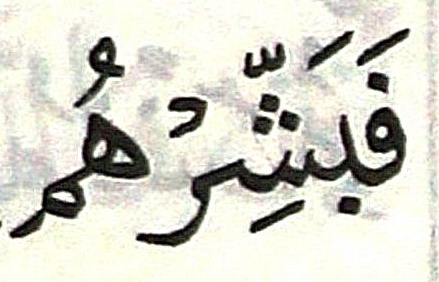 فَبَشِّرْهُم